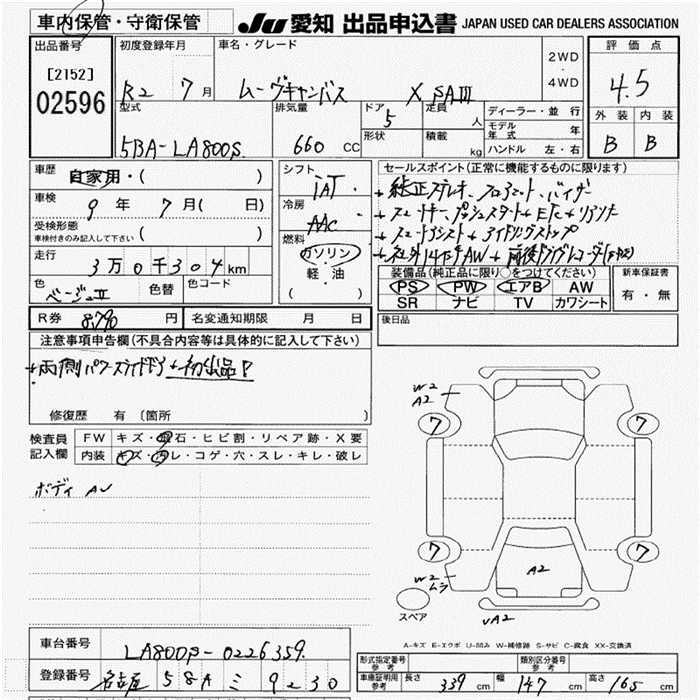 車内保管・守衛保管
JU 愛知 出品申込書 JAPAN USED CAR DEALERS ASSOCIATION
出品番号
[2152]
02596
初度登録年月
R2 7月
車名・グレード
ムーヴキャンバス X SAⅢ
2WD
・
4WD
評価点
4.5
外装 内装
B B
型式
5BA-LA800S
排気量
660 CC
ドア
5
形状
定員
人
積載
kg
ディーラー・並行
モデル年式 年
ハンドル 左・右
車歴
自家用・( )
車検
9年 7月( 日)
受検形態
車検付きのみ記入して下さい ( )
走行
3万0千304km
色
ベージュⅡ
色替
色コード
シフト
IAT
冷房
AAC
燃料
ガソリン
軽・油
( )
セールスポイント(正常に機能するものに限ります)
+純正ステレオ、フロアマット、バイザー
+スマートキー、プッシュスタート+ETC+
+スマートアシスト+アイドリングストップ
+社外14インチAW+前後ドライブレコーダー
装備品(純正品に限り○をつけてください)
PS PW エアB AW
SR ナビ TV カワシート
新車保証書
有・無
R券 8,790 円
名変通知期限 月 日
後日品
注意事項申告欄(不具合内容等は具体的に記入して下さい)
+両側パワースライドドア+初出品!
修復歴 有 (箇所 )
検査員記入欄
FW キズ・飛石・ヒビ割・リペア跡・X要
内装 キズ・汚レ・コゲ・穴・スレ・キレ・破レ
ボディ AU
W2
A2
7 7
7 7
W2
ムラ
A2
スペア
A2
A-キズ E-エクボ U-凹み W-補修跡 S-サビ C-腐食 XX-交換済
車台番号
LA800S-0226359
登録番号
名古屋 58A ミ 9230
形式指定番号 参考
類別区分番号 参考
車庫証明用 参考
長さ 339 cm 幅 147 cm 高さ 165 cm